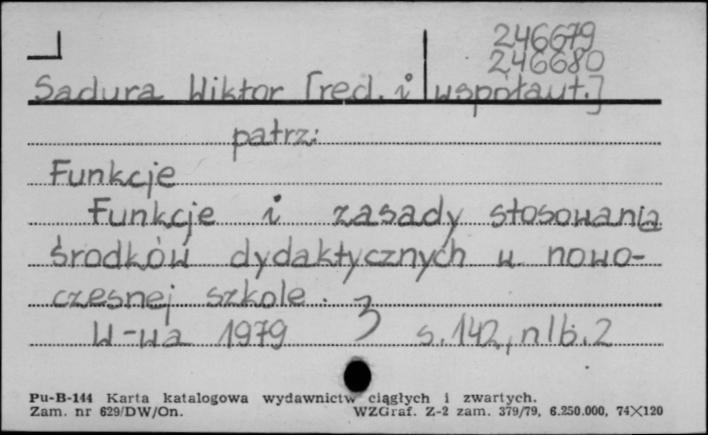 246679
246680
Sadura Wiktor [red. i współaut.]
patrz:
Funkcje
Funkcje i zasady stosowania
środków dydaktycznych w nowo-
czesnej szkole. 3
W-wa 1979 s. 142, nlb. 2
Pu-B-144 Karta katalogowa wydawnictw ciągłych i zwartych.
Zam. nr 629/DW/On. WZGraf. Z-2 zam. 379/79, 6.250.000, 74×120